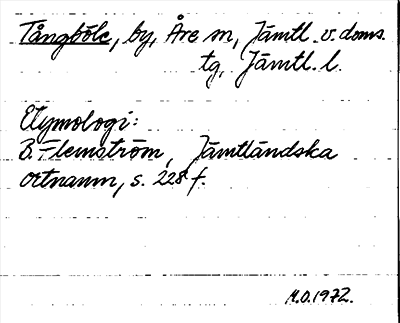 Tångböle, by, Åre sn, Jämtl. v. doms.
tg, Jämtl. l.
Etymologi:
B. Flemström, Jämtländska
ortnamn, s. 228 f.
M.O. 1972.